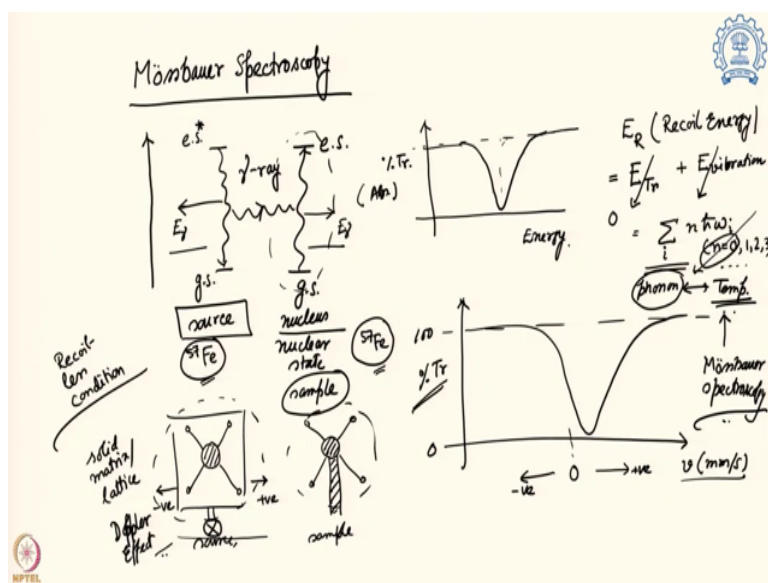 Mössbauer Spectroscopy
e.s.*
e.s.
γ-ray
E_γ
E_γ
g.s.
g.s.
source
nucleus
57Fe
nuclear
state
57Fe
sample
Recoil-
less
condition
solid
matrix/
lattice
-ve
+ve
Doppler
Effect
source
sample
% Tr.
(Abs)
Energy
E_R (Recoil Energy)
= E_Tr + E_vibration
0
= Σ_i n ħω_i
(n=0, 1, 2, 3
....
phonon ↔ Temp.
100
% Tr
0
-ve
0
+ve
v (mm/s)
Mössbauer
spectroscopy
NPTEL